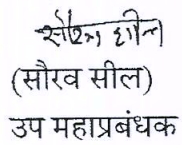 सौरभ शील
(सौरव सील)
उप महाप्रबंधक